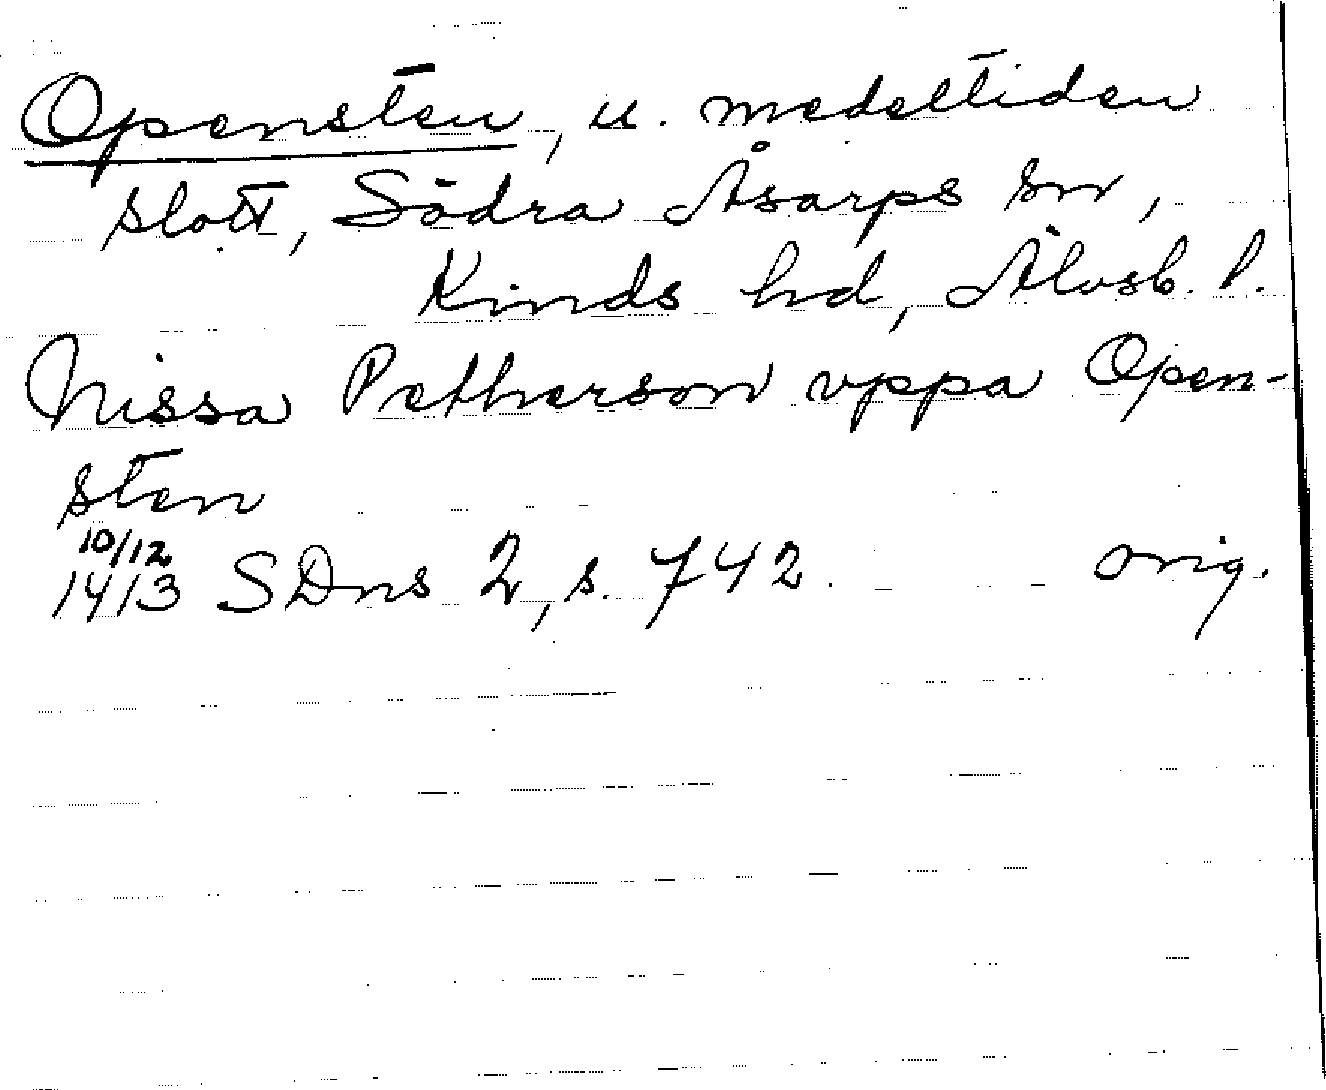 Opensten, u. medeltiden
slott, Södra Åsarps sn,
Kinds hd, Älvsb. l.
Nissa Petherson vppa Open-
sten
10/12
1413 SDns 2, s. 742. orig.